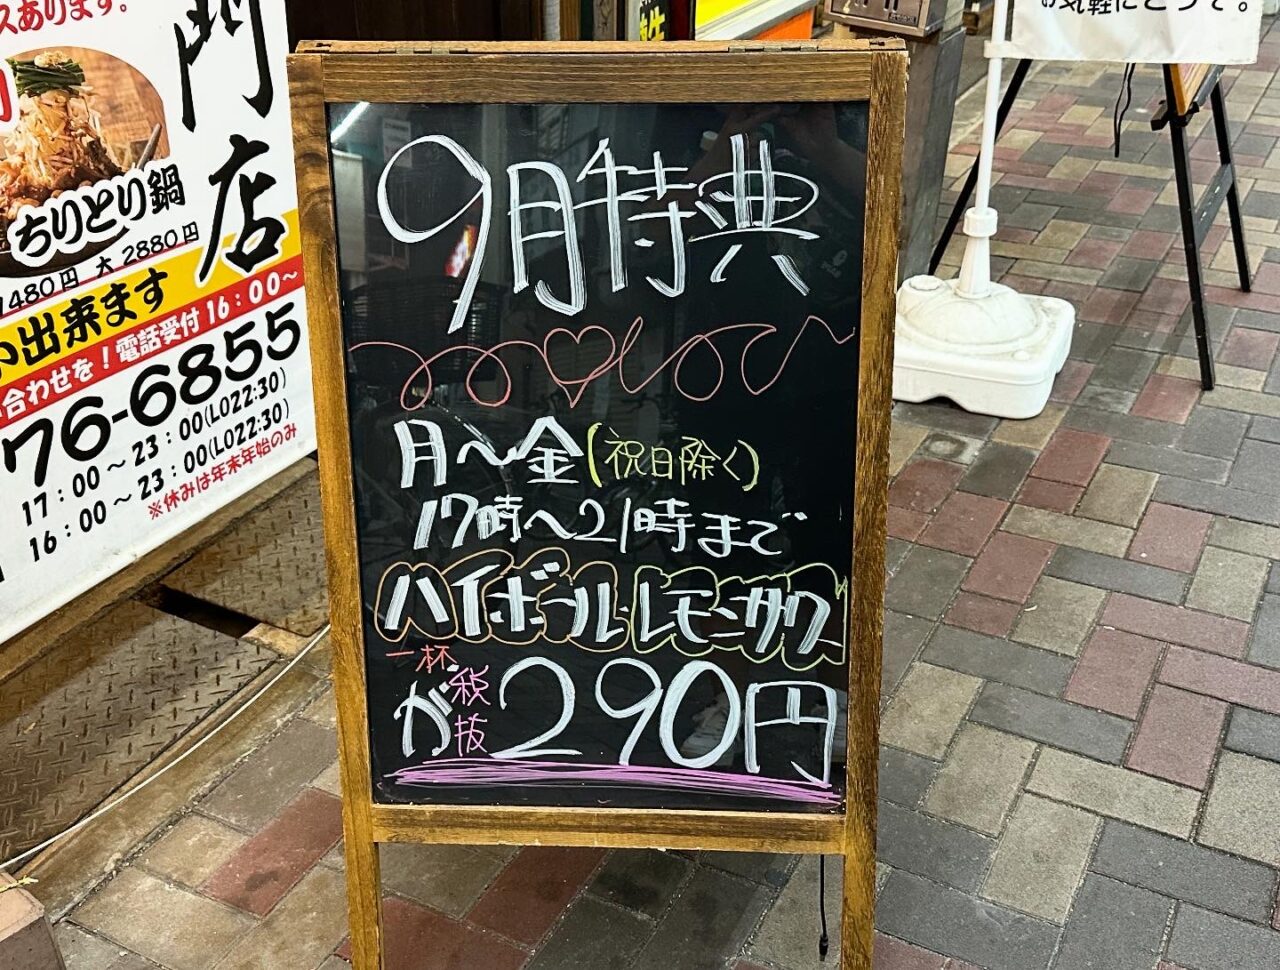 スあります。
門店
ちりとり鍋
1480円 大 2880円
出来ます
合わせを!電話受付 16:00~
76-6855
17:00~23:00(LO22:30)
16:00~23:00(LO22:30)
※休みは年末年始のみ
9月特典
月~金(祝日除く)
17時~21時まで
ハイボール・レモンサワー
一杯
が税抜290円
お気軽にどうぞ。